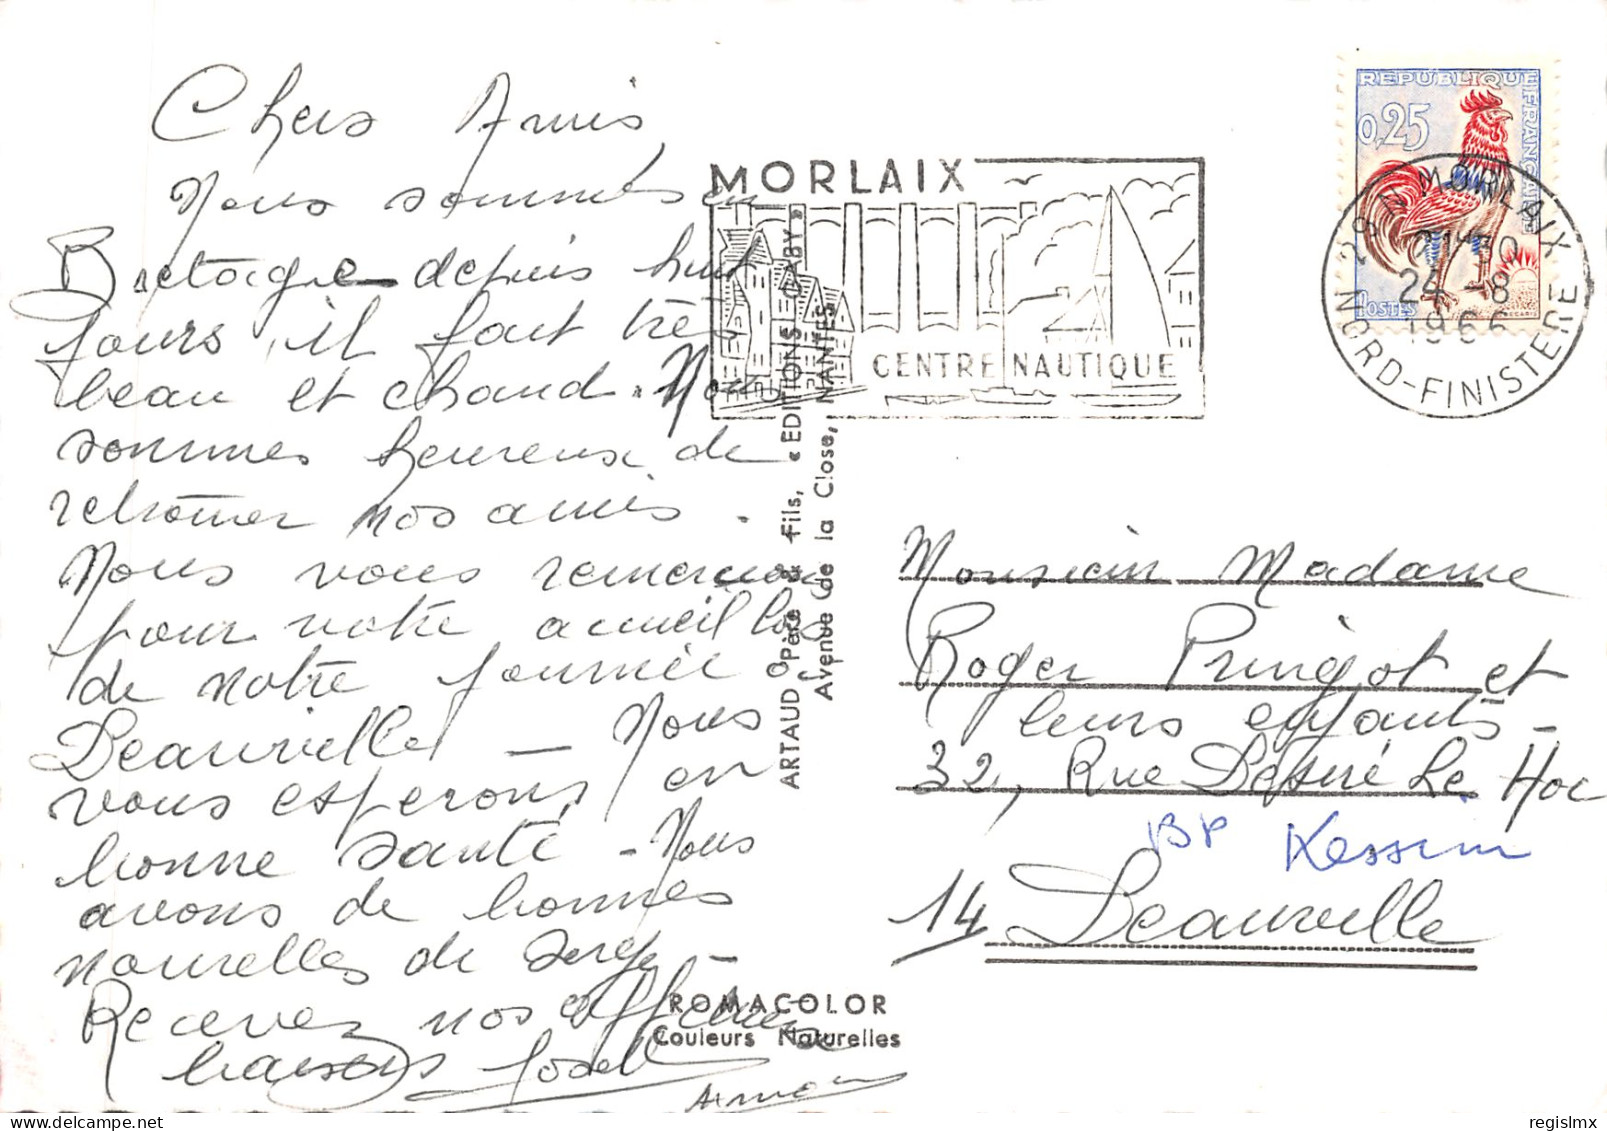 Chers Amis
Nous sommes en
Bretagne depuis huit
jours, il fait très
beau et chaud. Nous
sommes heureux de
retrouver nos amis.
Nous vous remercions
pour votre accueil lors
de notre journée
Deauville - Nous
vous esperons en
bonne santé - Nous
avons de bonnes
nouvelles de Serge -
Recevez nos affectueux
baisers
MORLAIX
CENTRE NAUTIQUE
REPUBLIQUE FRANÇAISE
0,25
POSTES
29 N MORLAIX
21H30
24 -8
1966
NORD-FINISTERE
ARTAUD Père & Fils, « EDITIONS GABY »
Avenue de la Close, NANTES
Monsieur Madame
Roger Pringot et
leurs enfants -
32, Rue Désiré Le Hoc
BP
14 Deauville
ROMACOLOR
Couleurs Naturelles
delcampe.net
regislmx